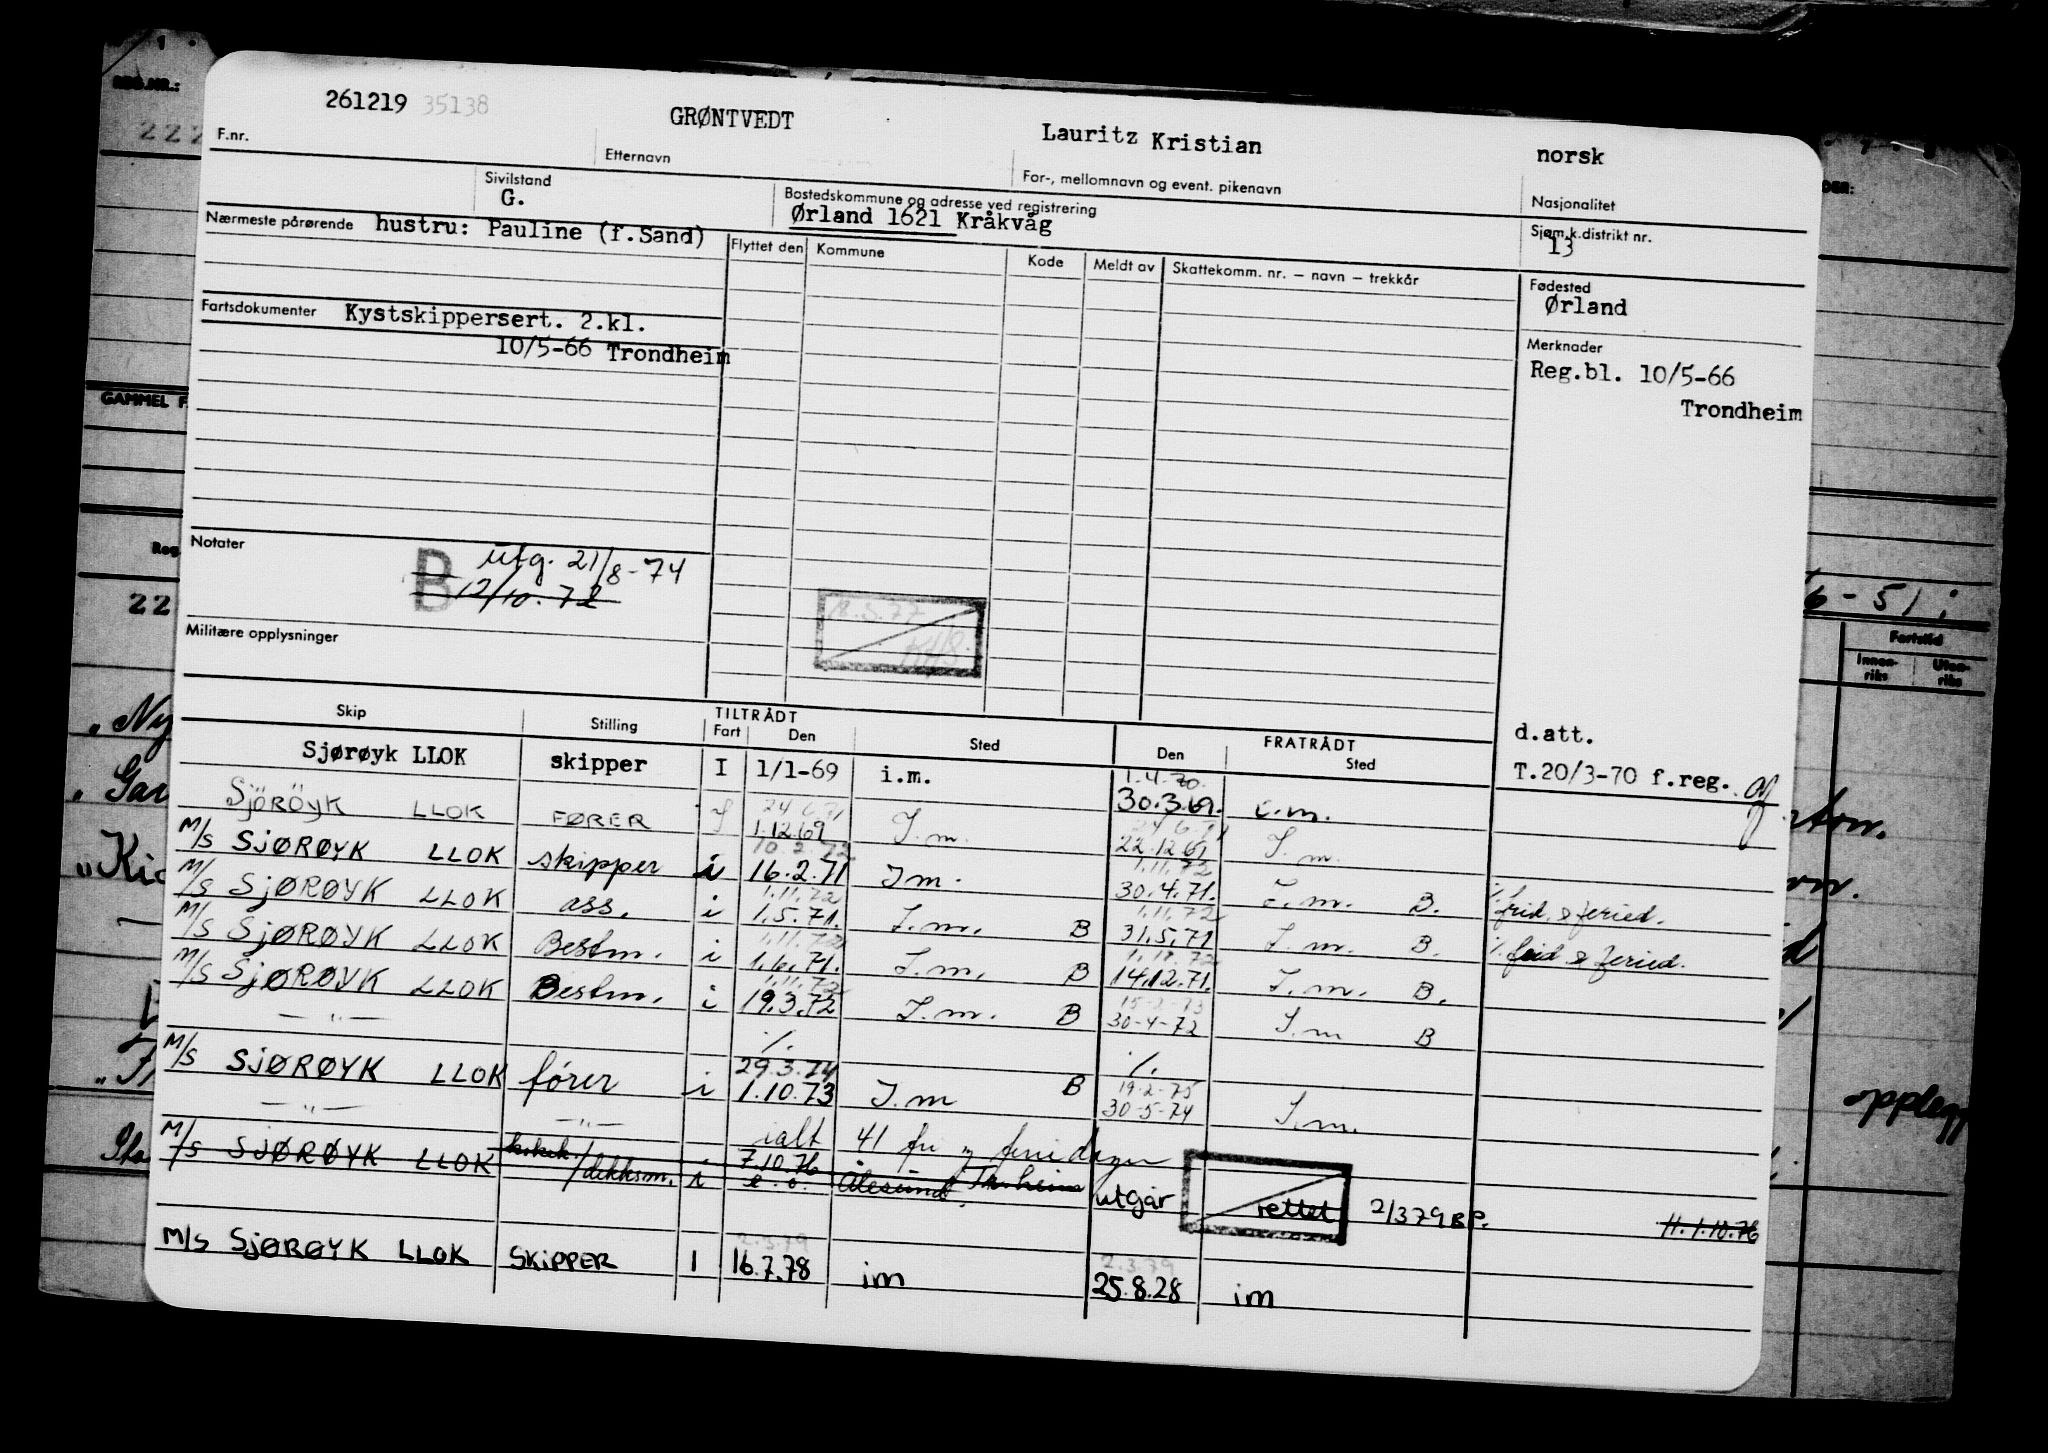 261219 35138 GRØNTVEDT Lauritz Kristian norsk
F.nr. Etternavn For-, mellomnavn og event. pikenavn Nasjonalitet
Sivilstand Bostedskommune og adresse ved registrering Sjøm.k.distrikt nr.
G. Ørland 1621 Kråkvåg 13
Nærmeste pårørende hustru: Pauline (f.Sand)
Flyttet den Kommune Kode Meldt av Skattekomm. nr. – navn – trekkår
Fødested
Ørland
Fartsdokumenter Kystskippersert. 2.kl.
10/5-66 Trondheim
Merknader
Reg.bl. 10/5-66
Trondheim
Notater
B utg. 21/8-74
12/10.72
18.5.77
Militære opplysninger
Skip Stilling TILTRÅDT FRATRÅDT
Fart Den Sted Den Sted
d.att.
T.20/3-70 f.reg.
Sjørøyk LLOK skipper I 1/1-69 i.m. 1.4.70. 30.3.69. i.m.
SJÖRÖYK LLOK FØRER I 24.6.71 1.12.69 I.m. 24.6.71 22.12.69 I.m.
M/S SJØRØYK LLOK skipper i 10.2.72 16.2.71 I m. 1.11.72 30.4.71. I.m. B. % frid. & feried.
M/S SJØRØYK LLOK ass. i 1.11.72 1.5.71. I.m. B 1.11.72 31.5.71 I.m. B. % frid & feried.
M/S SJØRØYK LLOK Bestm. i 1.11.72 1.6.71. I.m. B 1.11.72 14.12.71. I.m. B.
M/S SJØRØYK LLOK Bestm. i 1.11.72 19.3.72 I.m. B 15-2-73 30-4-72 I.m B
— " — %. %.
M/S SJØRØYK LLOK fører i 29.3.74 1.10.73 I.m B 19-2-75 30-5-74 I.m.
— " — — " — ialt 41 fri og feriedager
M/S SJØRØYK LLOK /dekksm. i 7.10.76 e.o. Ålesund, Tr.heim utgår rettet 2/379 BP. 11.1.10.76
M/S SJØRØYK LLOK SKIPPER I 2.3.79 16.7.78 im 2.3.79 25.8.28 im
REG.NR.:
222
GAMMEL F.
Reg.
22
6-51 i
Fartstid
Innenriks
Utenriks
opplegg